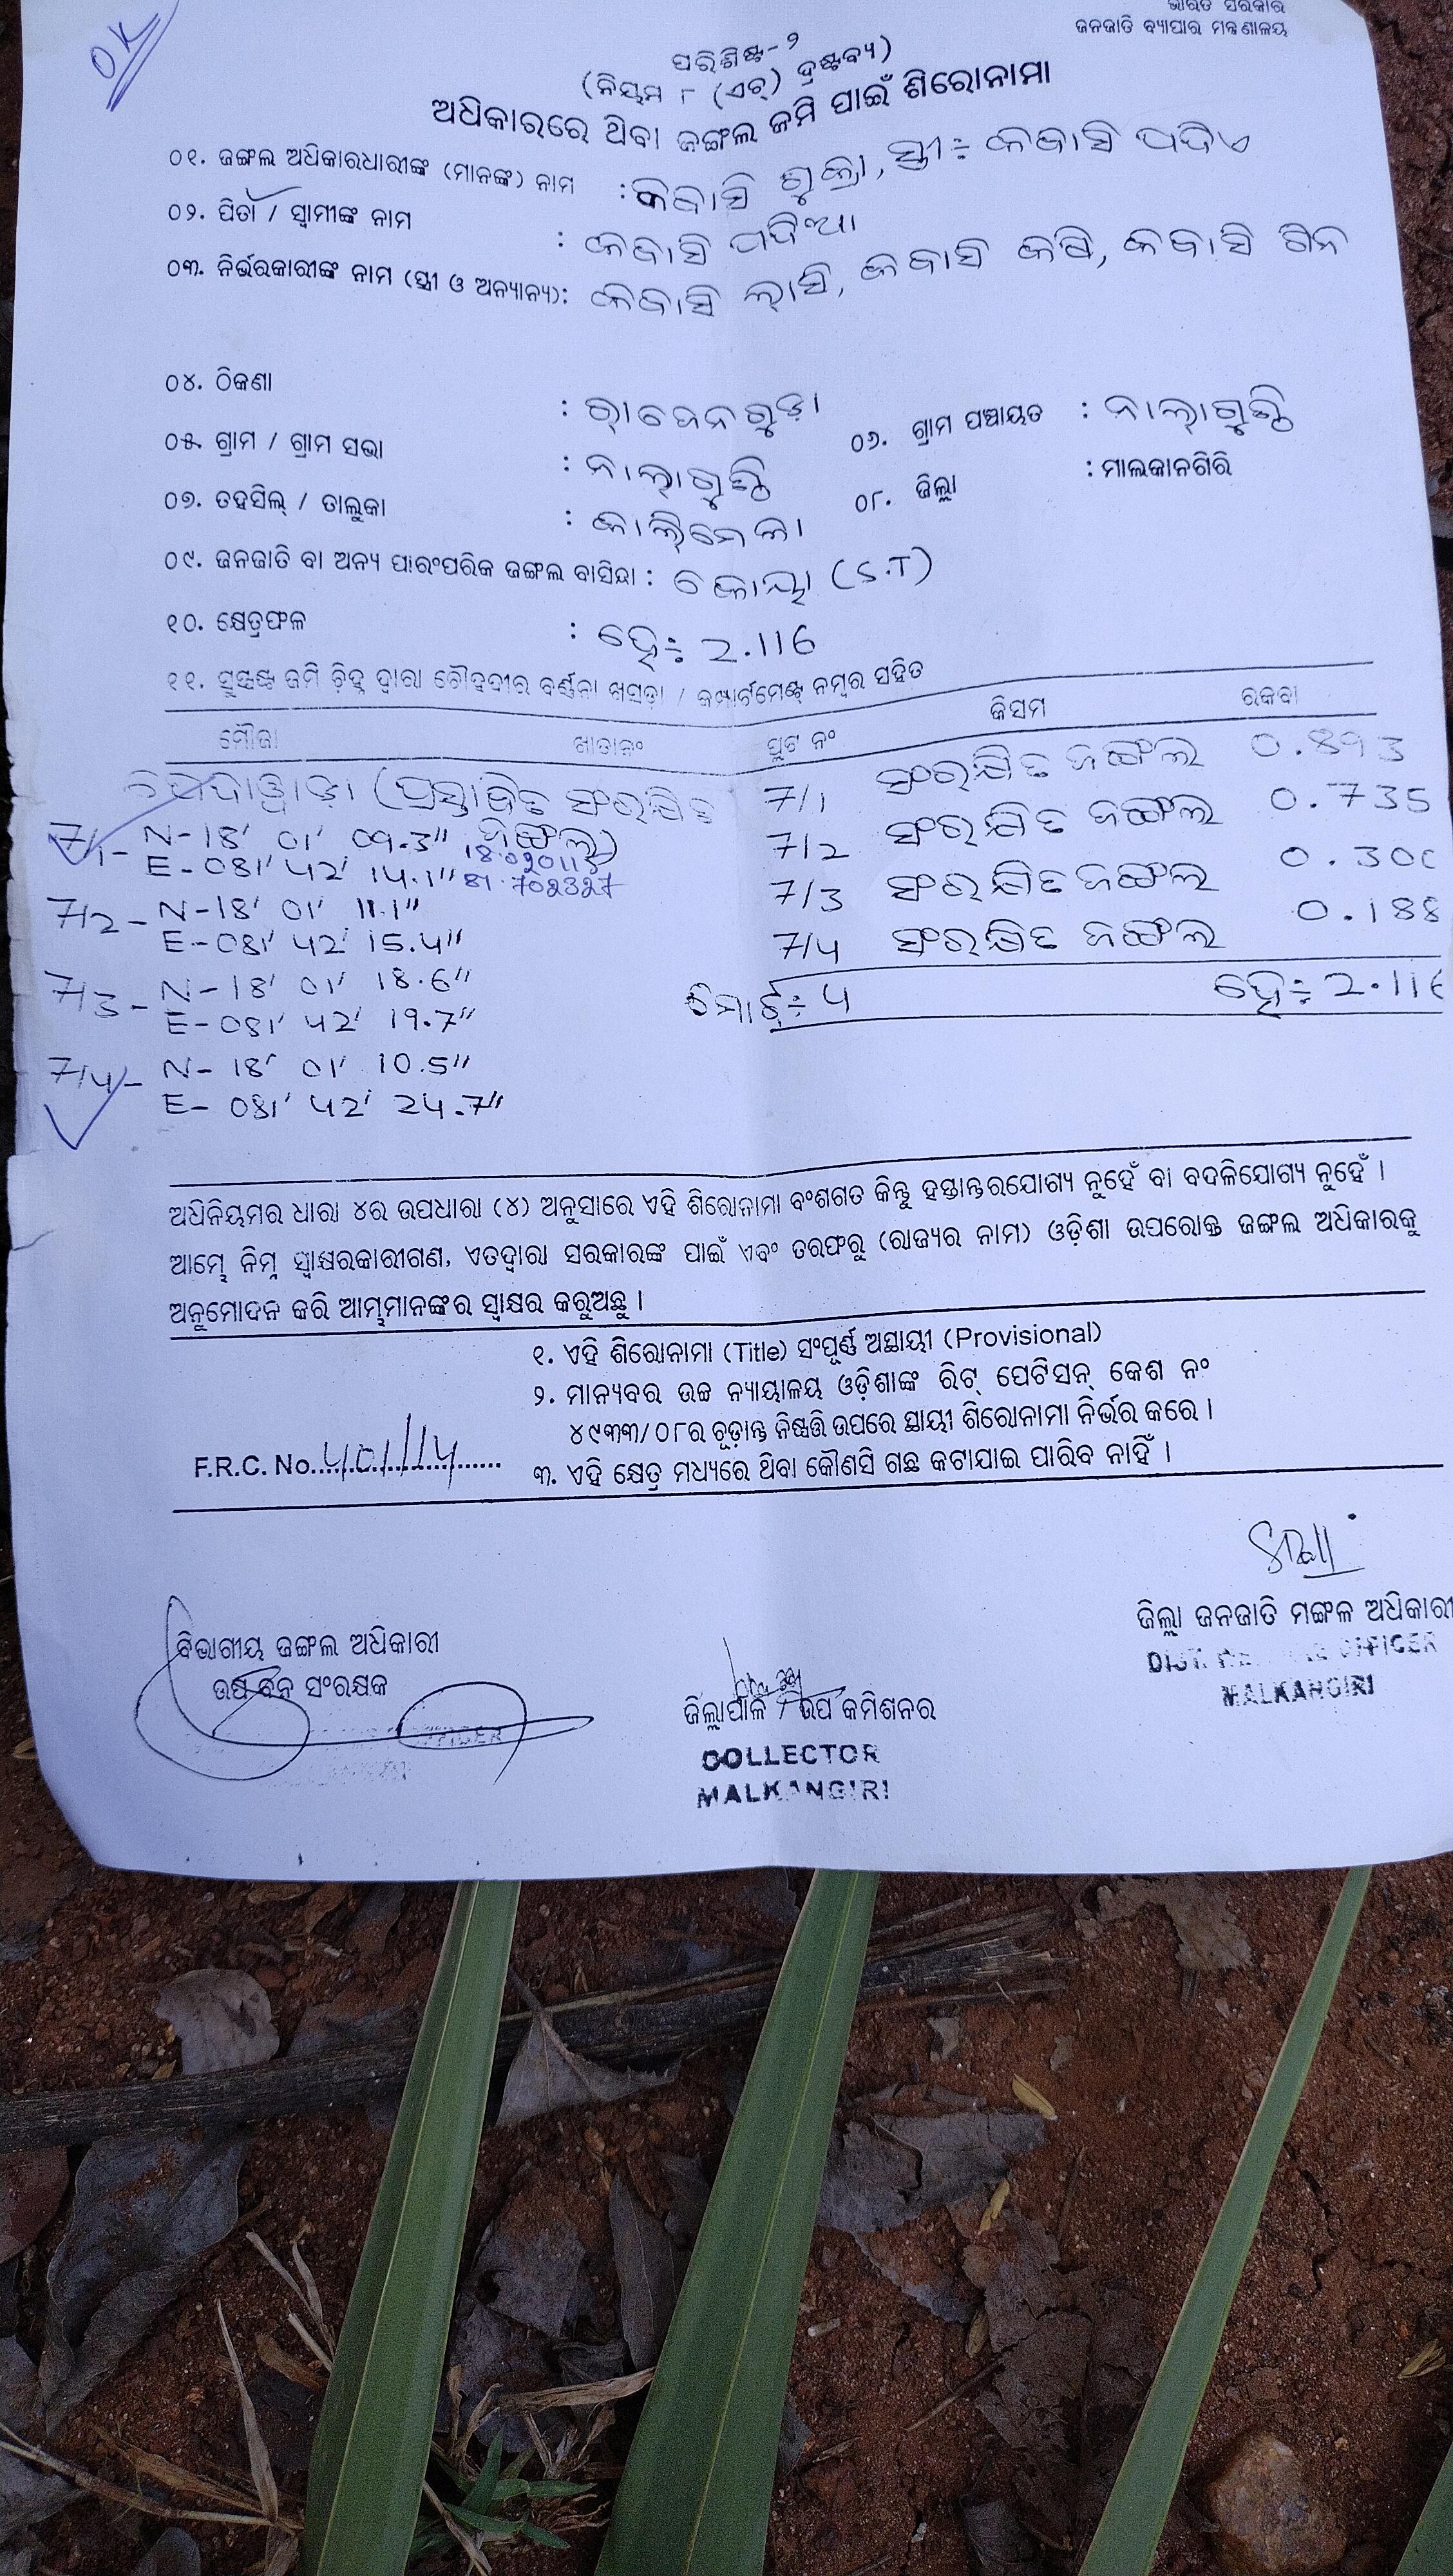 OK
ଭାରତ ସରକାର
ଜନଜାତି ବ୍ୟାପାର ମନ୍ତ୍ରଣାଳୟ
ପରିଶିଷ୍ଟ-୨
(ନିୟମ ୮ (ଏଚ୍) ଦ୍ରଷ୍ଟବ୍ୟ)
ଅଧିକାରରେ ଥିବା ଜଙ୍ଗଲ ଜମି ପାଇଁ ଶିରୋନାମା
୦୧. ଜଙ୍ଗଲ ଅଧିକାରଧାରୀଙ୍କ (ମାନଙ୍କ) ନାମ : କବାସି ଗୁଜା, ସ୍ତ୍ରୀ÷ କବାସି
୦୨. ପିତା / ସ୍ୱାମୀଙ୍କ ନାମ : କବାସି ପଦିଆ
୦୩. ନିର୍ଭରକାରୀଙ୍କ ନାମ (ସ୍ତ୍ରୀ ଓ ଅନ୍ୟାନ୍ୟ): କବାସି ଲାସି, କବାସି କବାସି
୦୪. ଠିକଣା :
୦୫. ଗ୍ରାମ / ଗ୍ରାମ ସଭା : ନାଲାଗୁଣ୍ଠି ୦୬. ଗ୍ରାମ ପଞ୍ଚାୟତ : ନାଲାଗୁଣ୍ଠି
୦୭. ତହସିଲ୍ / ତାଲୁକା : କାଲିମେଳା ୦୮. ଜିଲ୍ଲା : ମାଲକାନଗିରି
୦୯. ଜନଜାତି ବା ଅନ୍ୟ ପାରଂପରିକ ଜଙ୍ଗଲ ବାସିନ୍ଦା : କୋୟା (S.T)
୧୦. କ୍ଷେତ୍ରଫଳ : ହେ÷ 2.116
୧୧. ସୁସ୍ପଷ୍ଟ ଜମି ଚିହ୍ନ ଦ୍ୱାରା ଚୌହଦୀର ବର୍ଣ୍ଣନା ଖସଡ଼ା / କମ୍ପାର୍ଟମେଣ୍ଟ ନମ୍ବର ସହିତ
ମୌଜା ଖାତାନଂ ପ୍ଲଟ ନଂ କିସମ ରକବା
(ପ୍ରସ୍ତାବିତ ସଂରକ୍ଷିତ ଜଙ୍ଗଲ)
7/1 ସଂରକ୍ଷିତ ଜଙ୍ଗଲ 0.893
7/2 ସଂରକ୍ଷିତ ଜଙ୍ଗଲ 0.735
7/3 ସଂରକ୍ଷିତ ଜଙ୍ଗଲ 0.300
7/4 ସଂରକ୍ଷିତ ଜଙ୍ଗଲ 0.188
ମୋଟ÷ 4 ହେ÷ 2.116
7/1- N-18' 01' 09.3"
E-081' 42' 14.1" 81.702327
7/2- N-18' 01' 11.1"
E-081' 42' 15.4"
7/3- N-18' 01' 18.6"
E-081' 42' 19.7"
7/4- N-18' 01' 10.5"
E-081' 42' 24.7"
ଅଧିନିୟମର ଧାରା ୪ର ଉପଧାରା (୪) ଅନୁସାରେ ଏହି ଶିରୋନାମା ବଂଶଗତ କିନ୍ତୁ ହସ୍ତାନ୍ତରଯୋଗ୍ୟ ନୁହେଁ ବା ବଦଳିଯୋଗ୍ୟ ନୁହେଁ ।
ଆମ୍ଭେ ନିମ୍ନ ସ୍ୱାକ୍ଷରକାରୀଗଣ, ଏତଦ୍ୱାରା ସରକାରଙ୍କ ପାଇଁ ଏବଂ ତରଫରୁ (ରାଜ୍ୟର ନାମ) ଓଡ଼ିଶା ଉପରୋକ୍ତ ଜଙ୍ଗଲ ଅଧିକାରକୁ
ଅନୁମୋଦନ କରି ଆମ୍ଭମାନଙ୍କର ସ୍ୱାକ୍ଷର କରୁଅଛୁ ।
୧. ଏହି ଶିରୋନାମା (Title) ସଂପୂର୍ଣ୍ଣ ଅସ୍ଥାୟୀ (Provisional)
୨. ମାନ୍ୟବର ଉଚ୍ଚ ନ୍ୟାୟାଳୟ ଓଡ଼ିଶାଙ୍କ ରିଟ୍ ପେଟିସନ୍ କେଶ ନଂ
୪୯୩୩/୦୮ର ଚୂଡ଼ାନ୍ତ ନିଷ୍ପତ୍ତି ଉପରେ ସ୍ଥାୟୀ ଶିରୋନାମା ନିର୍ଭର କରେ ।
F.R.C. No. 401/14
୩. ଏହି କ୍ଷେତ୍ର ମଧ୍ୟରେ ଥିବା କୌଣସି ଗଛ କଟାଯାଇ ପାରିବ ନାହିଁ ।
ବିଭାଗୀୟ ଜଙ୍ଗଲ ଅଧିକାରୀ
ଉପ ବନ ସଂରକ୍ଷକ
ଜିଲ୍ଲାପାଳ / ଉପ କମିଶନର
COLLECTOR
MALKANGIRI
ଜିଲ୍ଲା ଜନଜାତି ମଙ୍ଗଳ ଅଧିକାରୀ
DIST. OFFICER
MALKANGIRI